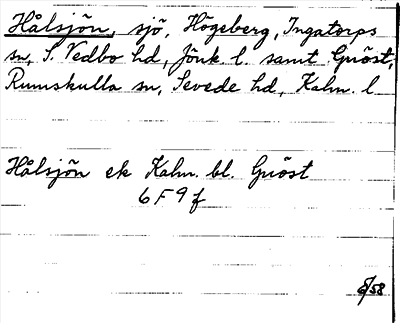 Hålsjön, sjö, Högeberg, Ingatorps
sn, S. Vedbo hd, Jönk. l. samt Gnöst,
Rumskulla sn, Sevede hd, Kalm. l
Hålsjön ek Kalm. bl. Gnöst
6 F 9 f
6/58